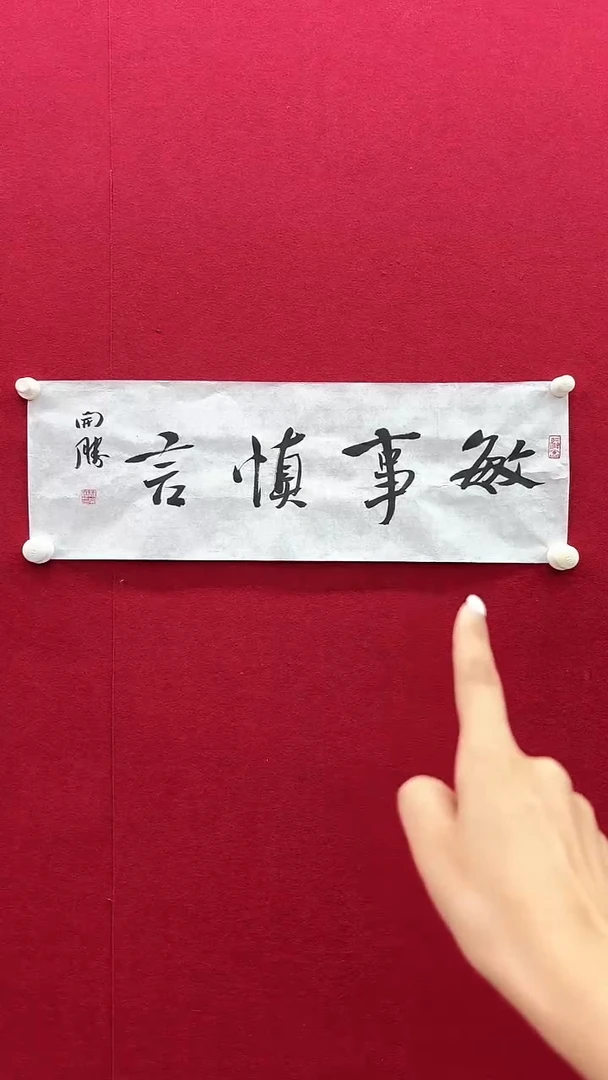 敏事慎言
開勝